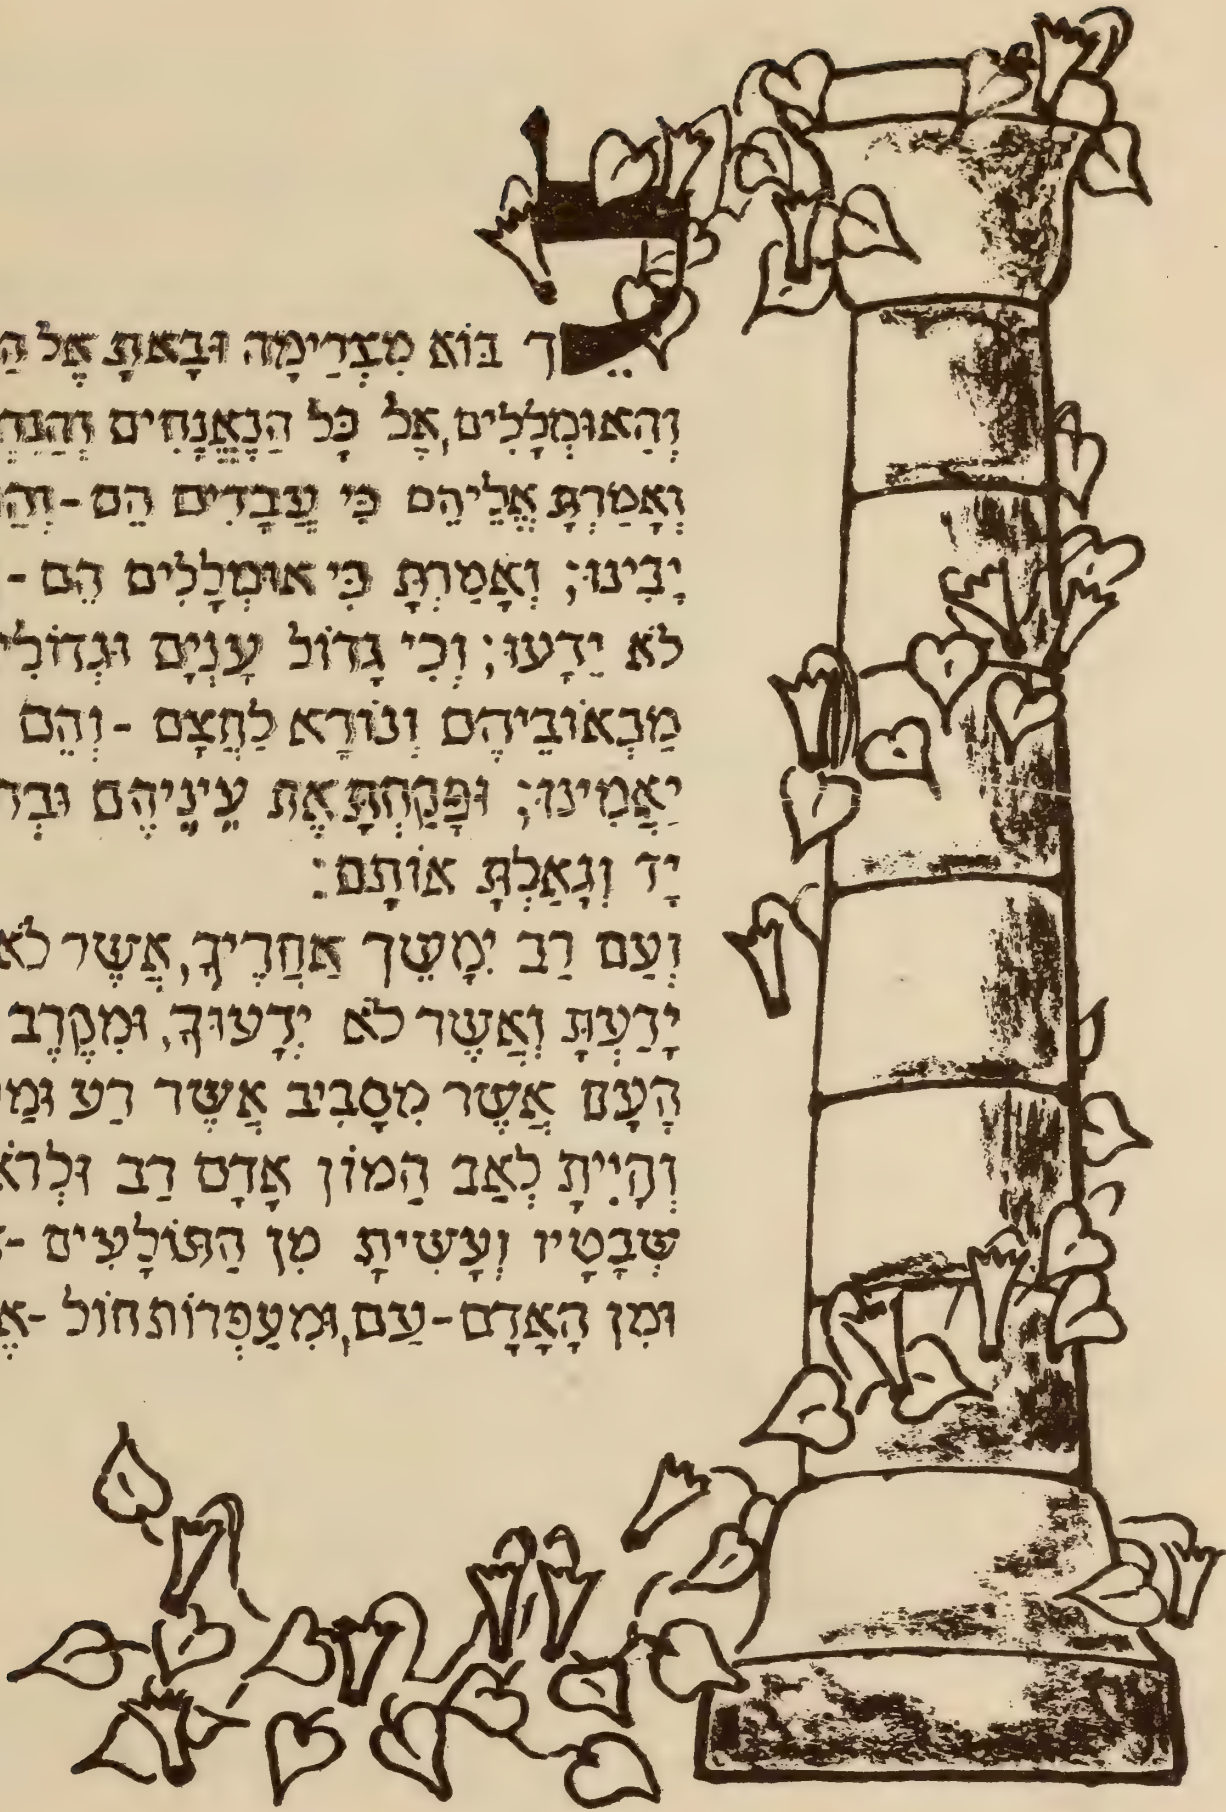 לֵךְ בּוֹא מִצְרַיְמָה וּבָאתָ אֶל
וְהָאוּמְלָלִים, אֶל כָּל הַנֶּאֱנָחִים
וְאָמַרְתָּ אֲלֵיהֶם כִּי עֲבָדִים הֵם -
יָבִינוּ; וְאָמַרְתָּ כִּי אוּמְלָלִים הֵם -
לֹא יֵדָעוּ; וְכִי גָדוֹל עָנְיָם
מַכְאוֹבֵיהֶם וְנוֹרָא לַחֲצָם - וְהֵם
יַאֲמִינוּ; וּפָקַחְתָּ אֶת עֵינֵיהֶם
יָד וְגָאַלְתָּ אוֹתָם:
וְעַם רַב יִמָּשֵׁךְ אַחֲרֶיךָ, אֲשֶׁר לֹא
יָדַעְתָּ וַאֲשֶׁר לֹא יְדָעוּךָ, וּמִקֶּרֶב
הָעָם אֲשֶׁר מִסָּבִיב אֲשֶׁר רַע
וְהָיִיתָ לְאַב הַמוֹן אָדָם רַב
שְׁבָטָיו וְעָשִׂיתָ מִן הַתּוֹלָעִים -
וּמִן הָאָדָם - עַם, וּמֵעַפְרוֹת חוֹל -